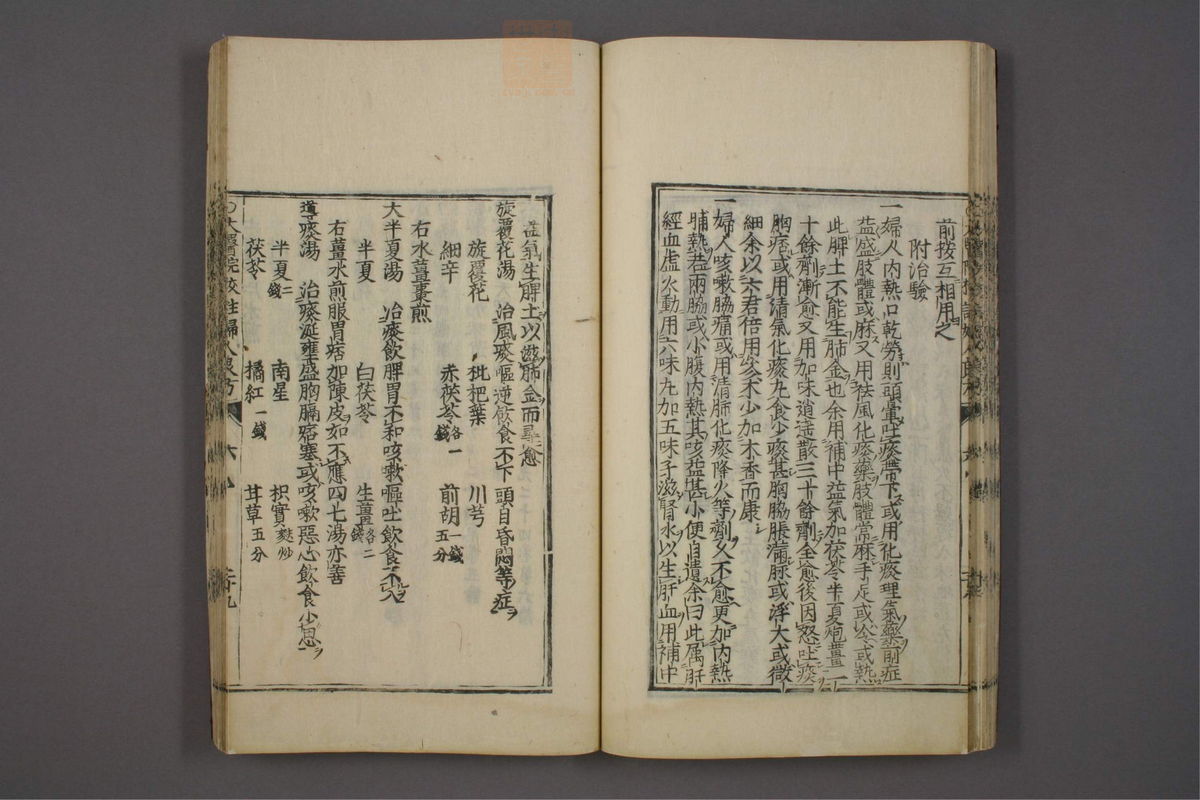 前按互相用之
附治驗
一婦人內熱口乾勞則頭暈吐痰帶下或用化痰理氣藥前症
益盛肢體或麻又用祛風化痰藥肢體常麻手足或冷或熱
此脾土不能生肺金也余用補中益氣加茯苓半夏炮薑二
十餘劑漸愈又用加味逍遙散三十餘劑全愈後因怒吐痰
胸痞或用清氣化痰丸食少痰甚胸脇脹滿脉或浮大或微
細余以六君倍用參朮少加木香而康
一婦人咳嗽脇痛或用清肺化痰降火等劑久不愈更加內熱
晡熱若兩脇或小腹內熱其咳益甚小便自遺余曰此属肝
經血虛火動用六味丸加五味子滋腎水以生肝血用補中
益氣生脾土以滋肺金而尋愈
旋覆花湯 治風痰嘔逆飲食不下頭目昏悶等症
旋覆花 枇杷葉 川芎
細辛 赤茯苓各一錢 前胡一錢五分
右水薑棗煎
大半夏湯 治痰飲脾胃不和咳嗽嘔吐飲食不入
半夏 白茯苓 生薑各二錢
右薑水煎服胃痞加陳皮如不應四七湯亦善
導痰湯 治痰涎壅盛胸膈痞塞或咳嗽惡心飲食少思
半夏二錢 南星 枳實麩炒
茯苓 橘紅一錢 甘草五分
太醫院校註婦人良方 六